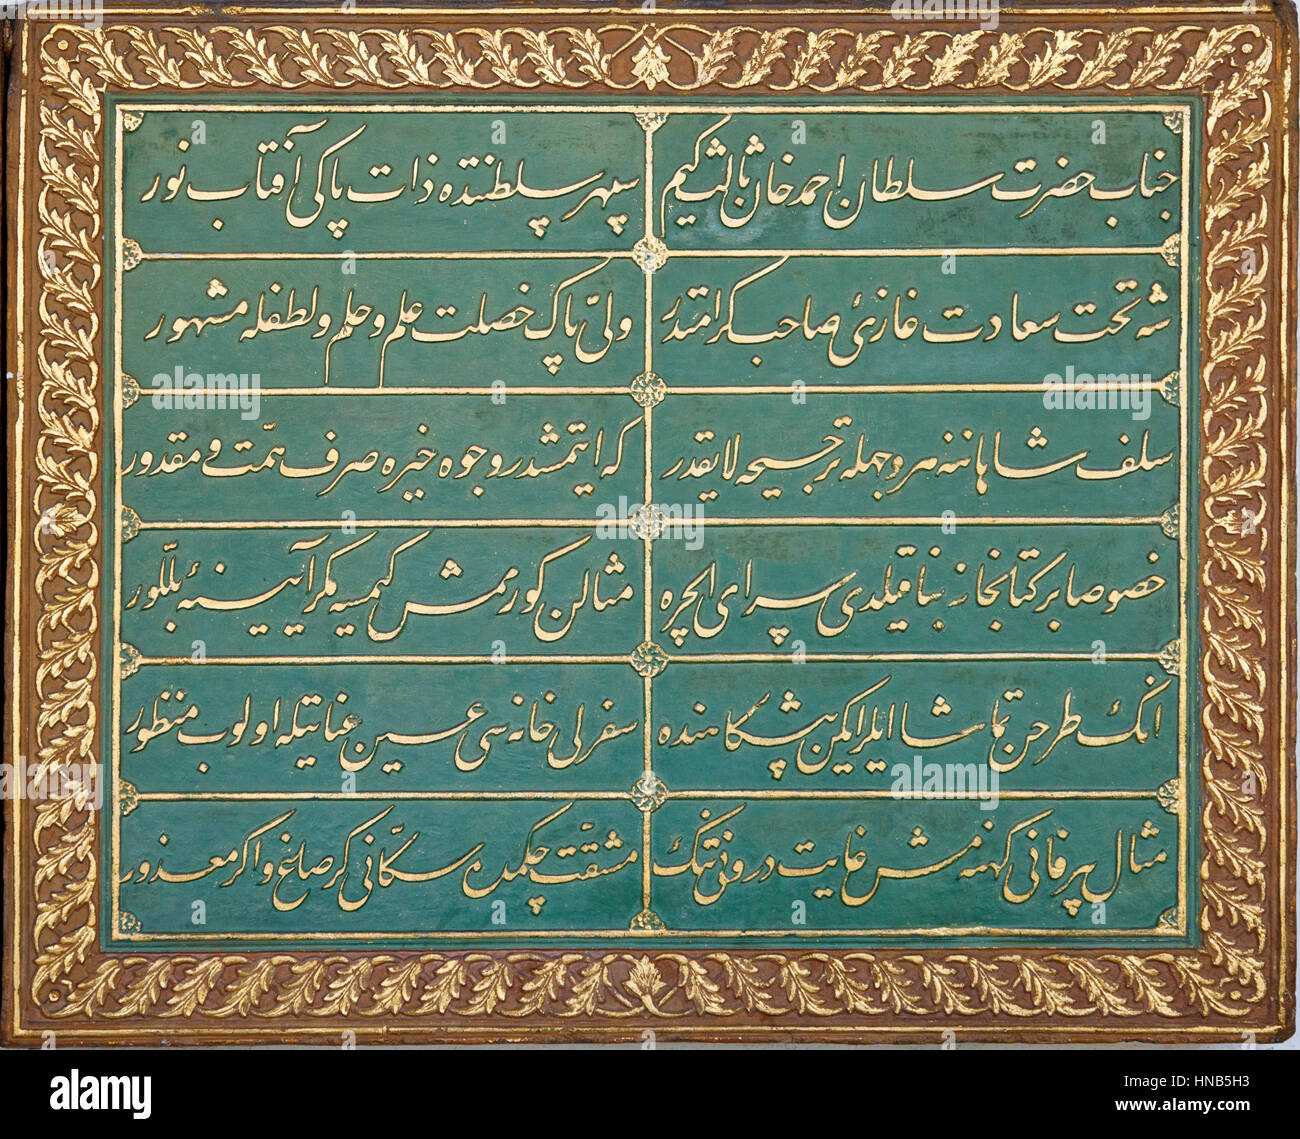 جناب حضرت سلطان احمد خان ثالث كیم
سپهر سلطنتده ذات پاكی آفتاب نور
شه تخت سعادت غازئ صاحب كرامتدر
ولیّ پاك خصلت علم و حلم و لطفله مشهور
سلف شاهاننه هر وجهله ترجیحه لایقدر
كه ایتمشدر وجوه خیره صرف همّت و مقدور
خصوصا بر كتابخانه بنا قیلدی سرای ایچره
مثالن كورمش كیمسه مكر آیینهٔ بللّور
انك طرحن تماشا ایلر ایكن پیشكاهنده
سفرلی خانه سی عین عنایتله اولوب منظور
مثال پیر فانی كهنه مش غایت درونی تنك
مشقّت چكمده سكّانی كر صاغ و اكر معذور
alamy
Image ID: HNB5H3
www.alamy.com